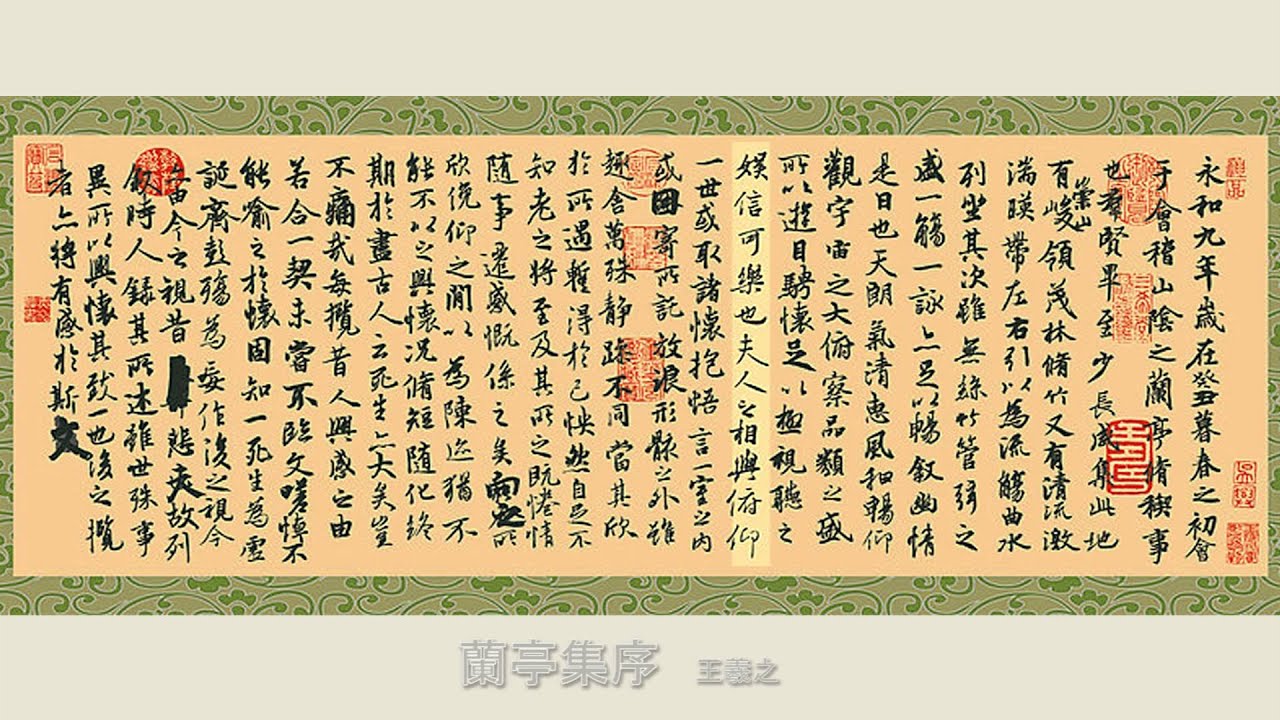 永和九年歲在癸丑暮春之初會
于會稽山陰之蘭亭脩稧事
也羣賢畢至少長咸集此地
有崇山峻領茂林脩竹又有清流激
湍暎帶左右引以為流觴曲水
列坐其次雖無絲竹管弦之
盛一觴一詠亦足以暢敘幽情
是日也天朗氣清惠風和暢仰
觀宇宙之大俯察品類之盛
所以遊目騁懷足以極視聽之
娛信可樂也夫人之相與俯仰
一世或取諸懷抱悟言一室之內
或因寄所託放浪形骸之外雖
趣舍萬殊静躁不同當其欣
於所遇蹔得於己怏然自足不
知老之將至及其所之既惓情
隨事遷感慨係之矣向之所
欣俛仰之閒以為陳迹猶不
能不以之興懷況脩短隨化終
期於盡古人云死生亦大矣豈
不痛哉每攬昔人興感之由
若合一契未嘗不臨文嗟悼不
能喻之於懷固知一死生為虛
誕齊彭殤為妄作後之視今
亦由今之視昔悲夫故列
敘時人錄其所述雖世殊事
異所以興懷其致一也後之攬
者亦將有感於斯文
蘭亭集序 王羲之